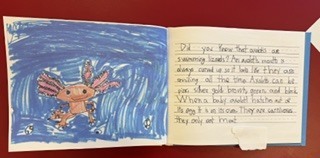 Did you know that axolotls are
swimming lizards? An axolotl's mouth is
always curved up so it looks like they are
smiling all the time. Axolotls can be
pink, silver, gold, brown, green and black.
When a baby axolotl hatches out of
its egg it is on its own. They are carnivores
they only eat meat.